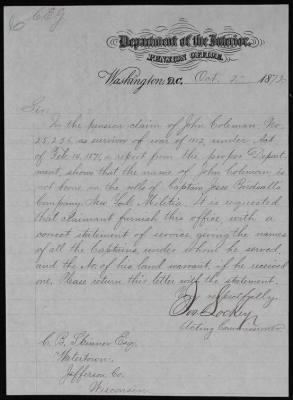 C.E.G.
Department of the Interior,
PENSION OFFICE,
Washington, D.C. Oct. 2 187
Sir:
In the pension claim of John Coleman No.
as survivor of war of 1812, under Act
of Feb. 14, 1871, a report from the proper Depart-
ment, shows that the name of John Coleman is
not borne on the rolls of Captain Jesse
Company, New York Militia. It is requested
that claimant furnish this office with a
correct statement of service, giving the names
of all the Captains under whom he served,
and the No. of his land warrant, if he received
one. Please return this letter with the statement.
Very respectfully,
Jos Lockey
Acting Commissioner
C. B. Skinner Esq.
Watertown,
Jefferson Co.
Wisconsin